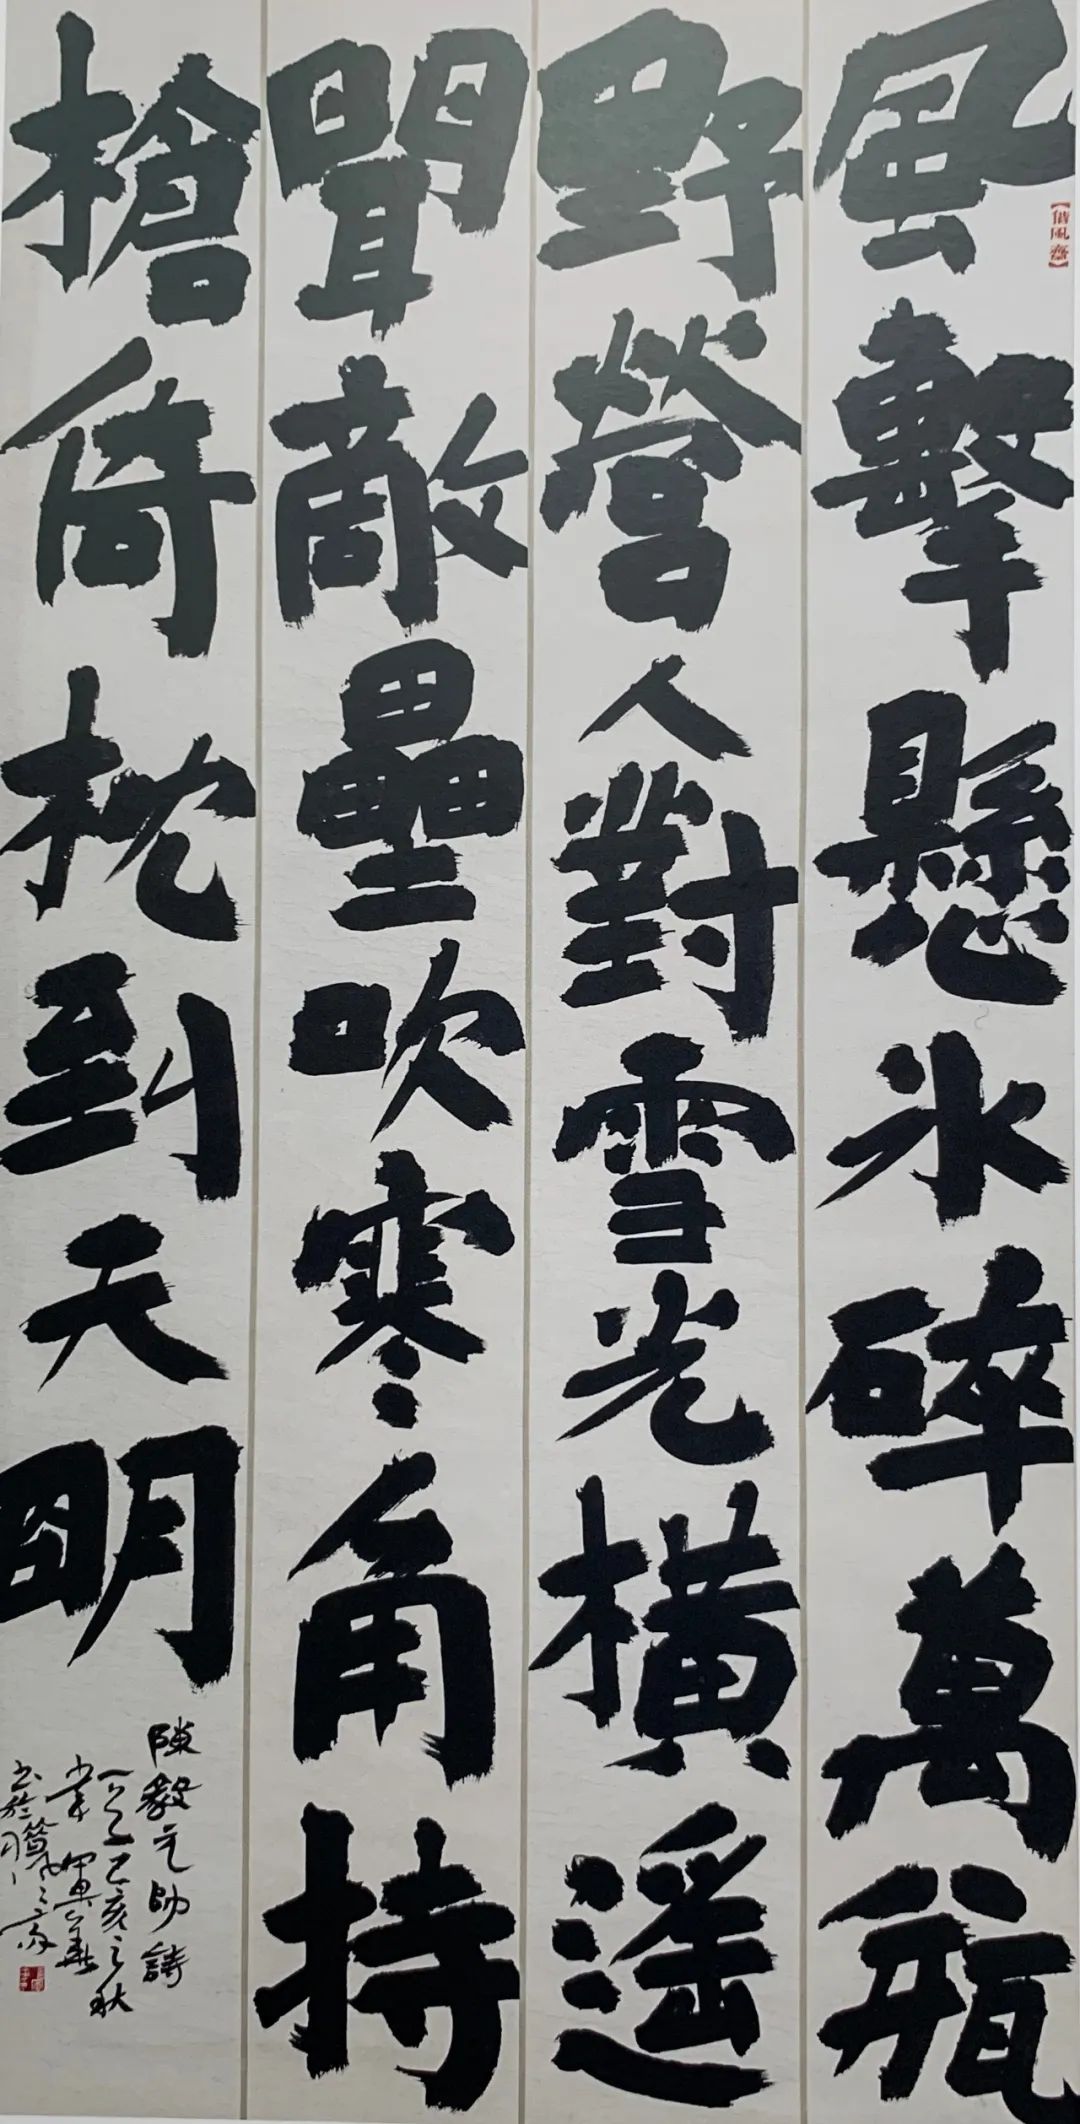 風擊懸冰碎萬瓶
【偕風齋】
野營人對雪光橫遥
聞敵壘吹寒角持
槍倚枕到天明
陳毅元帥詩
己亥之秋